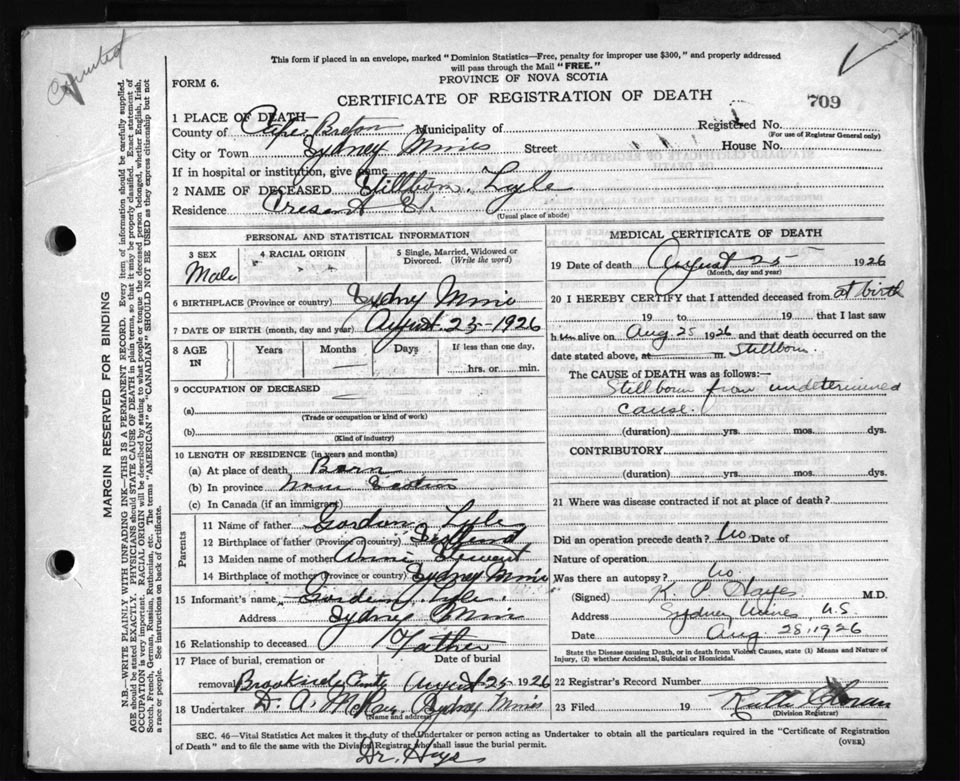 Counted
This form if placed in an envelope, marked "Dominion Statistics—Free, penalty for improper use $300," and properly addressed
will pass through the Mail "FREE."
FORM 6.
PROVINCE OF NOVA SCOTIA
CERTIFICATE OF REGISTRATION OF DEATH
709
1 PLACE OF DEATH—
County of Cape Breton Municipality of Registered No.
(For use of Registrar General only)
City or Town Sydney Mines Street House No.
If in hospital or institution, give name
2 NAME OF DECEASED Stillborn Lyle
Residence Cresent St.
(Usual place of abode)
PERSONAL AND STATISTICAL INFORMATION
3 SEX
Male
4 RACIAL ORIGIN
5 Single, Married, Widowed or
Divorced. (Write the word)
6 BIRTHPLACE (Province or country) Sydney Mines
7 DATE OF BIRTH (month, day and year) August 25-1926
8 AGE IN Years Months Days If less than one day,
hrs. or min.
9 OCCUPATION OF DECEASED
(a)
(Trade or occupation or kind of work)
(b)
(Kind of industry)
10 LENGTH OF RESIDENCE (in years and months)
(a) At place of death Born
(b) In province Nova Scotia
(c) In Canada (if an immigrant)
Parents
11 Name of father Gordon Lyle
12 Birthplace of father (Province or country) Scotland
13 Maiden name of mother Annie Stewart
14 Birthplace of mother (Province or country) Sydney Mines
15 Informant's name Gordon Lyle
Address Sydney Mines
16 Relationship to deceased Father
17 Place of burial, cremation or Date of burial
removal Brookside Cemty August 25 1926
18 Undertaker D. A. McKay, Sydney Mines
(Name and address)
MEDICAL CERTIFICATE OF DEATH
19 Date of death August 25 1926
(Month, day and year)
20 I HEREBY CERTIFY that I attended deceased from at birth
19 to 19 that I last saw
him alive on Aug 25 1926 and that death occurred on the
date stated above, at m. Stillborn
The CAUSE of DEATH was as follows:—
Stillborn from undetermined
cause.
(duration) yrs. mos. dys.
CONTRIBUTORY
(duration) yrs. mos. dys.
21 Where was disease contracted if not at place of death?
Did an operation precede death? No Date of
Nature of operation
Was there an autopsy? No
(Signed) K. P. Hayes M.D.
Address Sydney Mines, N.S.
Date Aug 28, 1926
State the Disease causing Death, or in death from Violent Causes, state (1) Means and Nature of
Injury, (2) whether Accidental, Suicidal or Homicidal.
22 Registrar's Record Number
23 Filed 19 Ruth
(Division Registrar)
SEC. 46—Vital Statistics Act makes it the duty of the Undertaker or person acting as Undertaker to obtain all the particulars required in the "Certificate of Registration
of Death" and to file the same with the Division Registrar who shall issue the burial permit.
(OVER)
Dr. Hays
MARGIN RESERVED FOR BINDING
N.B.—WRITE PLAINLY WITH UNFADING INK—THIS IS A PERMANENT RECORD. Every item of information should be carefully supplied.
AGE should be stated EXACTLY. PHYSICIANS should STATE CAUSE OF DEATH in plain terms, so that it may be properly classified. Exact statement of
OCCUPATION is very important. RACIAL ORIGIN will be described by stating to what people or tongue the deceased person belonged, whether English, Irish,
Scotch, French, German, Russian, Ruthenian, etc. The terms "AMERICAN" or "CANADIAN" SHOULD NOT BE USED as they express citizenship but not
a race or people. See instructions on back of Certificate.